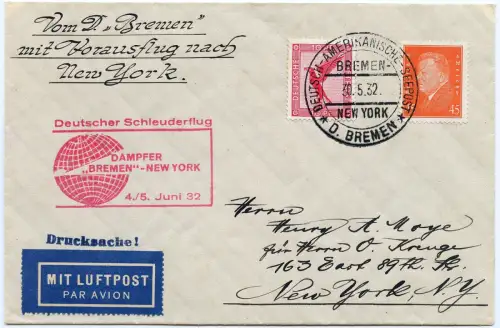 Vom D. „Bremen"
mit Vorausflug nach
New York.
Deutscher Schleuderflug
DAMPFER
„BREMEN"-NEW YORK
4./5. Juni 32
DEUTSCH-AMERIKANISCHE-SEEPOST
BREMEN-
30.5.32.
NEW YORK
★ D. BREMEN ★
45
Drucksache!
MIT LUFTPOST
PAR AVION
Herrn
Henry A. Moye
für Herrn O. Kruege
163 East 89th. Str.
New York, N.Y.